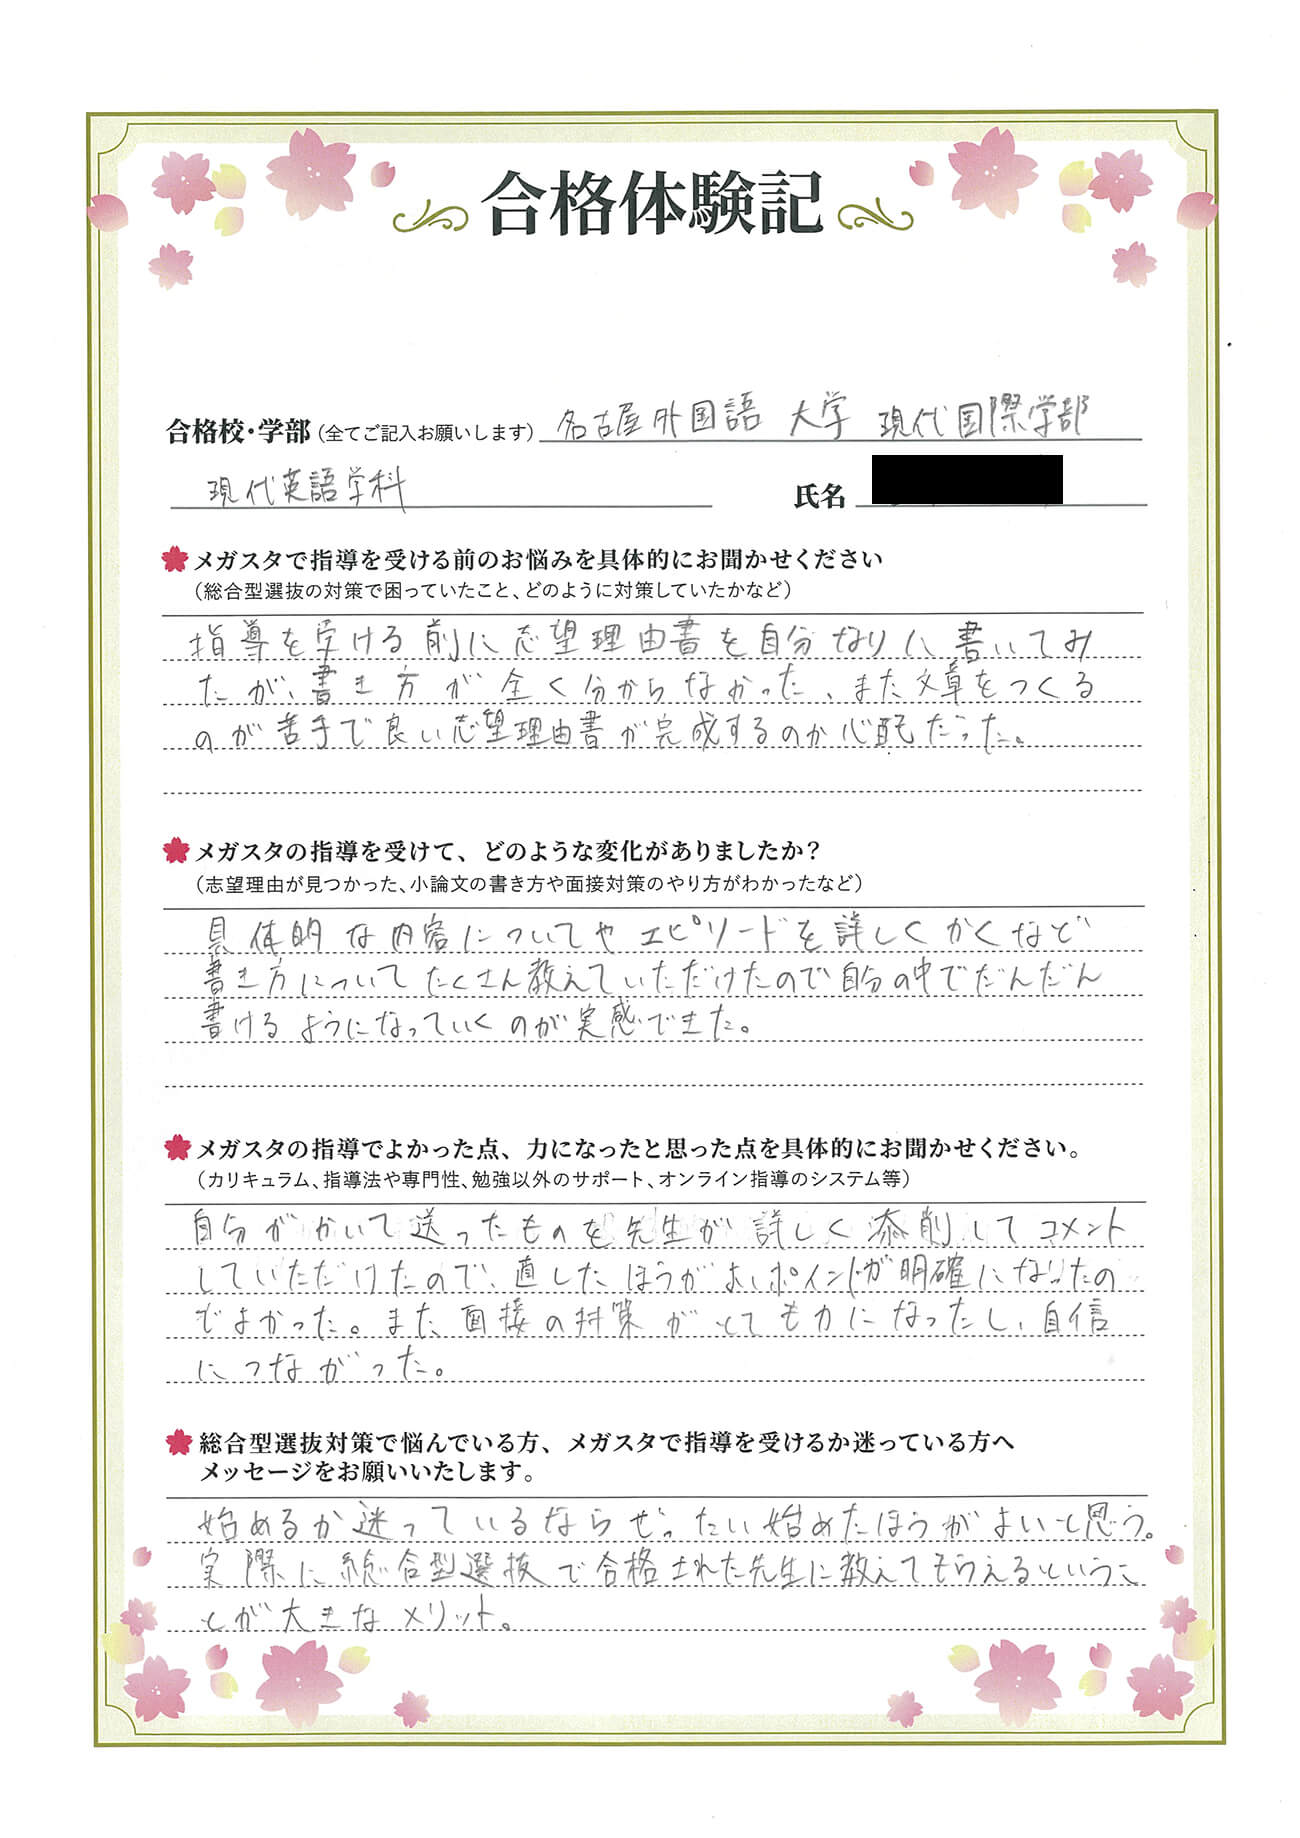 合格体験記
合格校・学部（全てご記入お願いします）名古屋外国語 大学 現代国際学部
現代英語学科 氏名
メガスタで指導を受ける前のお悩みを具体的にお聞かせください
（総合型選抜の対策で困っていたこと、どのように対策していたかなど）
指導を受ける前に志望理由書を自分なりに書いてみ
たが、書き方が全く分からなかった、また文章をつくる
のが苦手で良い志望理由書が完成するのか心配だった。
メガスタの指導を受けて、どのような変化がありましたか？
（志望理由が見つかった、小論文の書き方や面接対策のやり方がわかったなど）
具体的な内容についてやエピソードを詳しくかくなど
書き方についてたくさん教えていただけたので自分の中でだんだん
書けるようになっていくのが実感できた。
メガスタの指導でよかった点、力になったと思った点を具体的にお聞かせください。
（カリキュラム、指導法や専門性、勉強以外のサポート、オンライン指導のシステム等）
自分がかいて送ったものを先生が詳しく添削してコメント
していただけたので、直したほうがよいポイントが明確になったの
でよかった。また、面接の対策がとても力になったし、自信
につながった。
総合型選抜対策で悩んでいる方、メガスタで指導を受けるか迷っている方へ
メッセージをお願いいたします。
始めるか迷っているならぜったい始めたほうがよいと思う。
実際に総合型選抜で合格された先生に教えてもらえるというこ
とが大きなメリット。